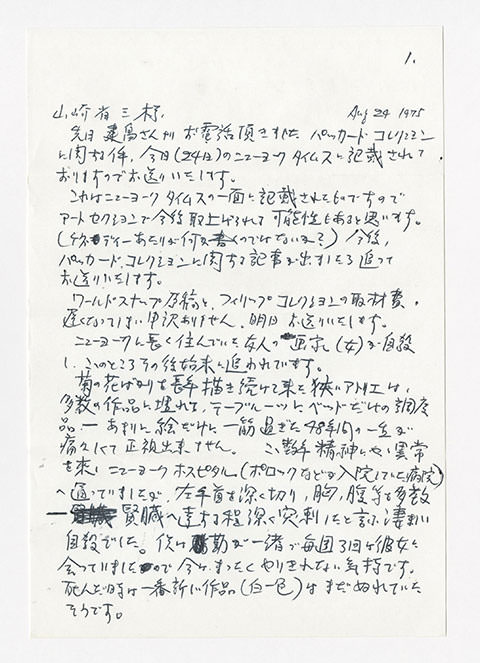 1.
山崎省三様 Aug 24 1975
先日 粟鳥さんが お電話頂きました パッカード コレクション
に関する件、今日(24日)のニューヨーク タイムスに記載されて
おりますのでお送りいたします。
これはニューヨーク タイムスの一面に記載されたものですので
アートセクションで今後取上げられて 可能性もあると思います。
(ケネディーあたりが何か書くのではないか?) 今後、
パッカード、コレクションに関する記事が出ましたら追って
お送りいたします。
ワールド・スナップ原稿と、フィリップ コレクションの取材費、
遅くなってしまい申訳ありません、明日 お送りいたします。
ニューヨークに長く住んでいた友人の 画家(女)が自殺
し、このところその後始末に追われています。
菊の花ばかりを長年描き続けて来た狭いアトリエは、
多数の作品に埋れて、テーブル一ツと、ベッドだけの調度
品 — あまりに絵だけに一筋過ぎた48年間の一生が
痛々しくて正視出来ません。 この数年 精神にやゝ異常
を来し ニューヨーク ホスピタル(ポロックなどが入院していた病院)
へ通っていましたが、左手首を深く切り、胸、腹等を多数
— 腎臓へ達する程深く突刺したと言う凄まじい
自殺でした。僕は 勤が一緒で毎週3回は彼女に
会っていましたので今は、まったくやりきれない気持です。
死んだ時は一番新しい作品(白一色)はまだぬれていた
そうです。